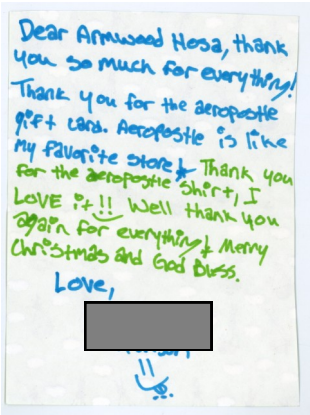 Dear Armwood Hosa, thank
you so much for everything!
Thank you for the aeropostle
gift card. Aeropostle is like
my favorite store! Thank you
for the aeropostle shirt, I
LOVE it!! Well thank you
again for everything! Merry
Christmas and God Bless.
Love,